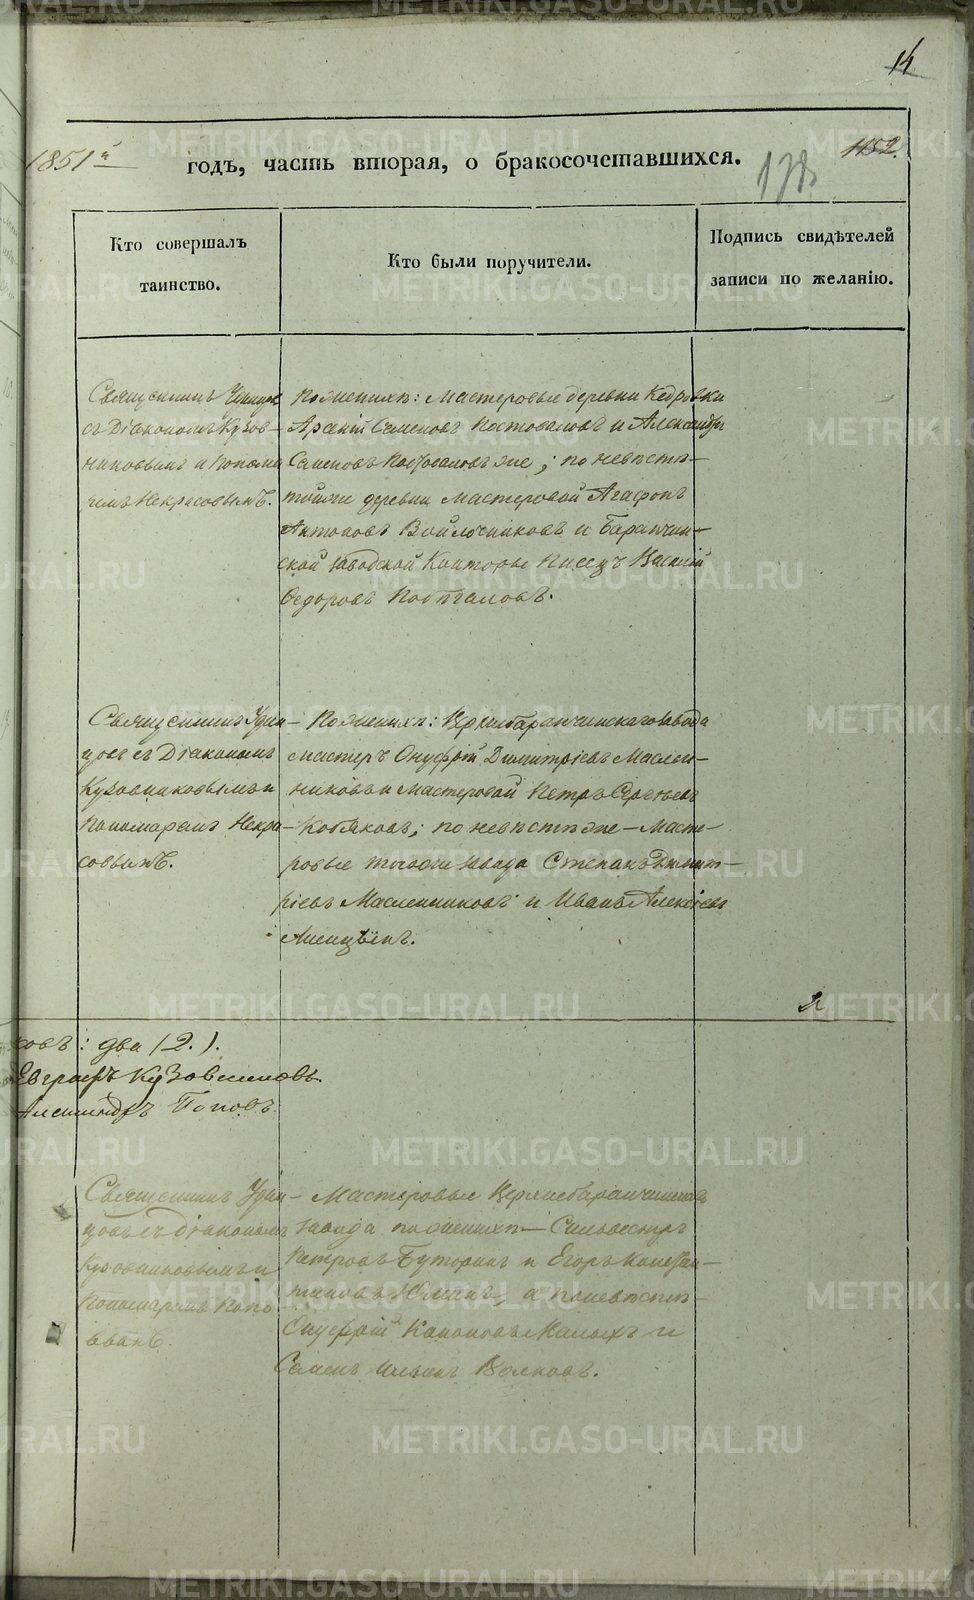 14
1851й
годъ, часть вторая, о бракосочетавшихся.
1152.
178
Кто совершалъ
таинство.
Кто были поручители.
Подпись свидѣтелей
записи по желанію.
Священникъ Удинцовъ
съ Діакономъ Кузов-
никовымъ и Понома-
ремъ Некрасовымъ.
По женихѣ: Мастеровые деревни Кедровки
Арсеній Семеновъ Постоваловъ и Александръ
Семеновъ Постоваловъ же; по невѣстѣ
той же деревни мастеровой Агафонъ
Антоновъ Войлошниковъ и Баранчин-
ской заводской Конторы Писецъ Василій
Ѳедоровъ Постоваловъ.
Священникъ Удин-
цовъ съ Діакономъ
Кузовниковымъ и
Пономаремъ Некра-
совымъ.
По женихѣ: Верхнебаранчинскаго завода
мастеръ Онуфрій Димитріевъ Маслен-
никовъ и Мастеровой Петръ Сергѣевъ
Кобяковъ; по невѣстѣ же – Масте-
ровые того же завода Степанъ Димит-
ріевъ Масленниковъ и Иванъ Алексѣевъ
Лисицынъ.
2
ковъ: два (2.).
Евграфъ Кузовниковъ.
Александръ Поповъ.
Священникъ Удин-
цовъ съ діакономъ
Кузовниковымъ и
Пономаремъ Попо-
вымъ.
Мастеровые Верхнебаранчинскаго
завода по женихѣ – Сильвестръ
Петровъ Буторинъ и Егоръ Констан-
тиновъ, а по невѣстѣ
Онуфрій Малыхъ и
Семенъ Ильинъ Волковъ.
METRIKI.GASO-URAL.RU